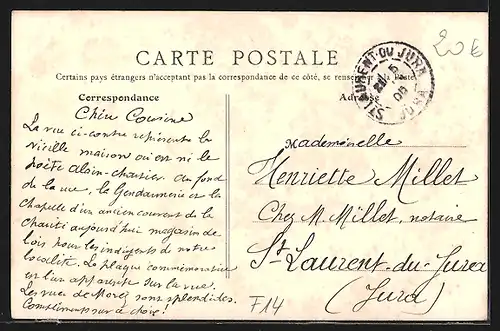 CARTE POSTALE
Certains pays étrangers n'acceptant pas la correspondance de ce côté, se renseigner à la Poste
Correspondance
Adresse
ST LAURENT-DU JURA
JURA
20€
Chère Cousine
La vue ci-contre représente la
vieille maison où on ni le
poète Alain-chartier. au fond
de la rue, la Gendarmerie et la
chapelle d'un ancien couvent de la
charité aujourd'hui magasin de
bois pour les indigents de notre
localité. La plaque commémorative
est bien apparente sur la vue.
Les vues de Morez sont splendides.
Compliments sur le choix!
Mademoiselle
Henriette Millet
Chez M. Millet, notaire
St Laurent-du-Jura
(Jura)
F14